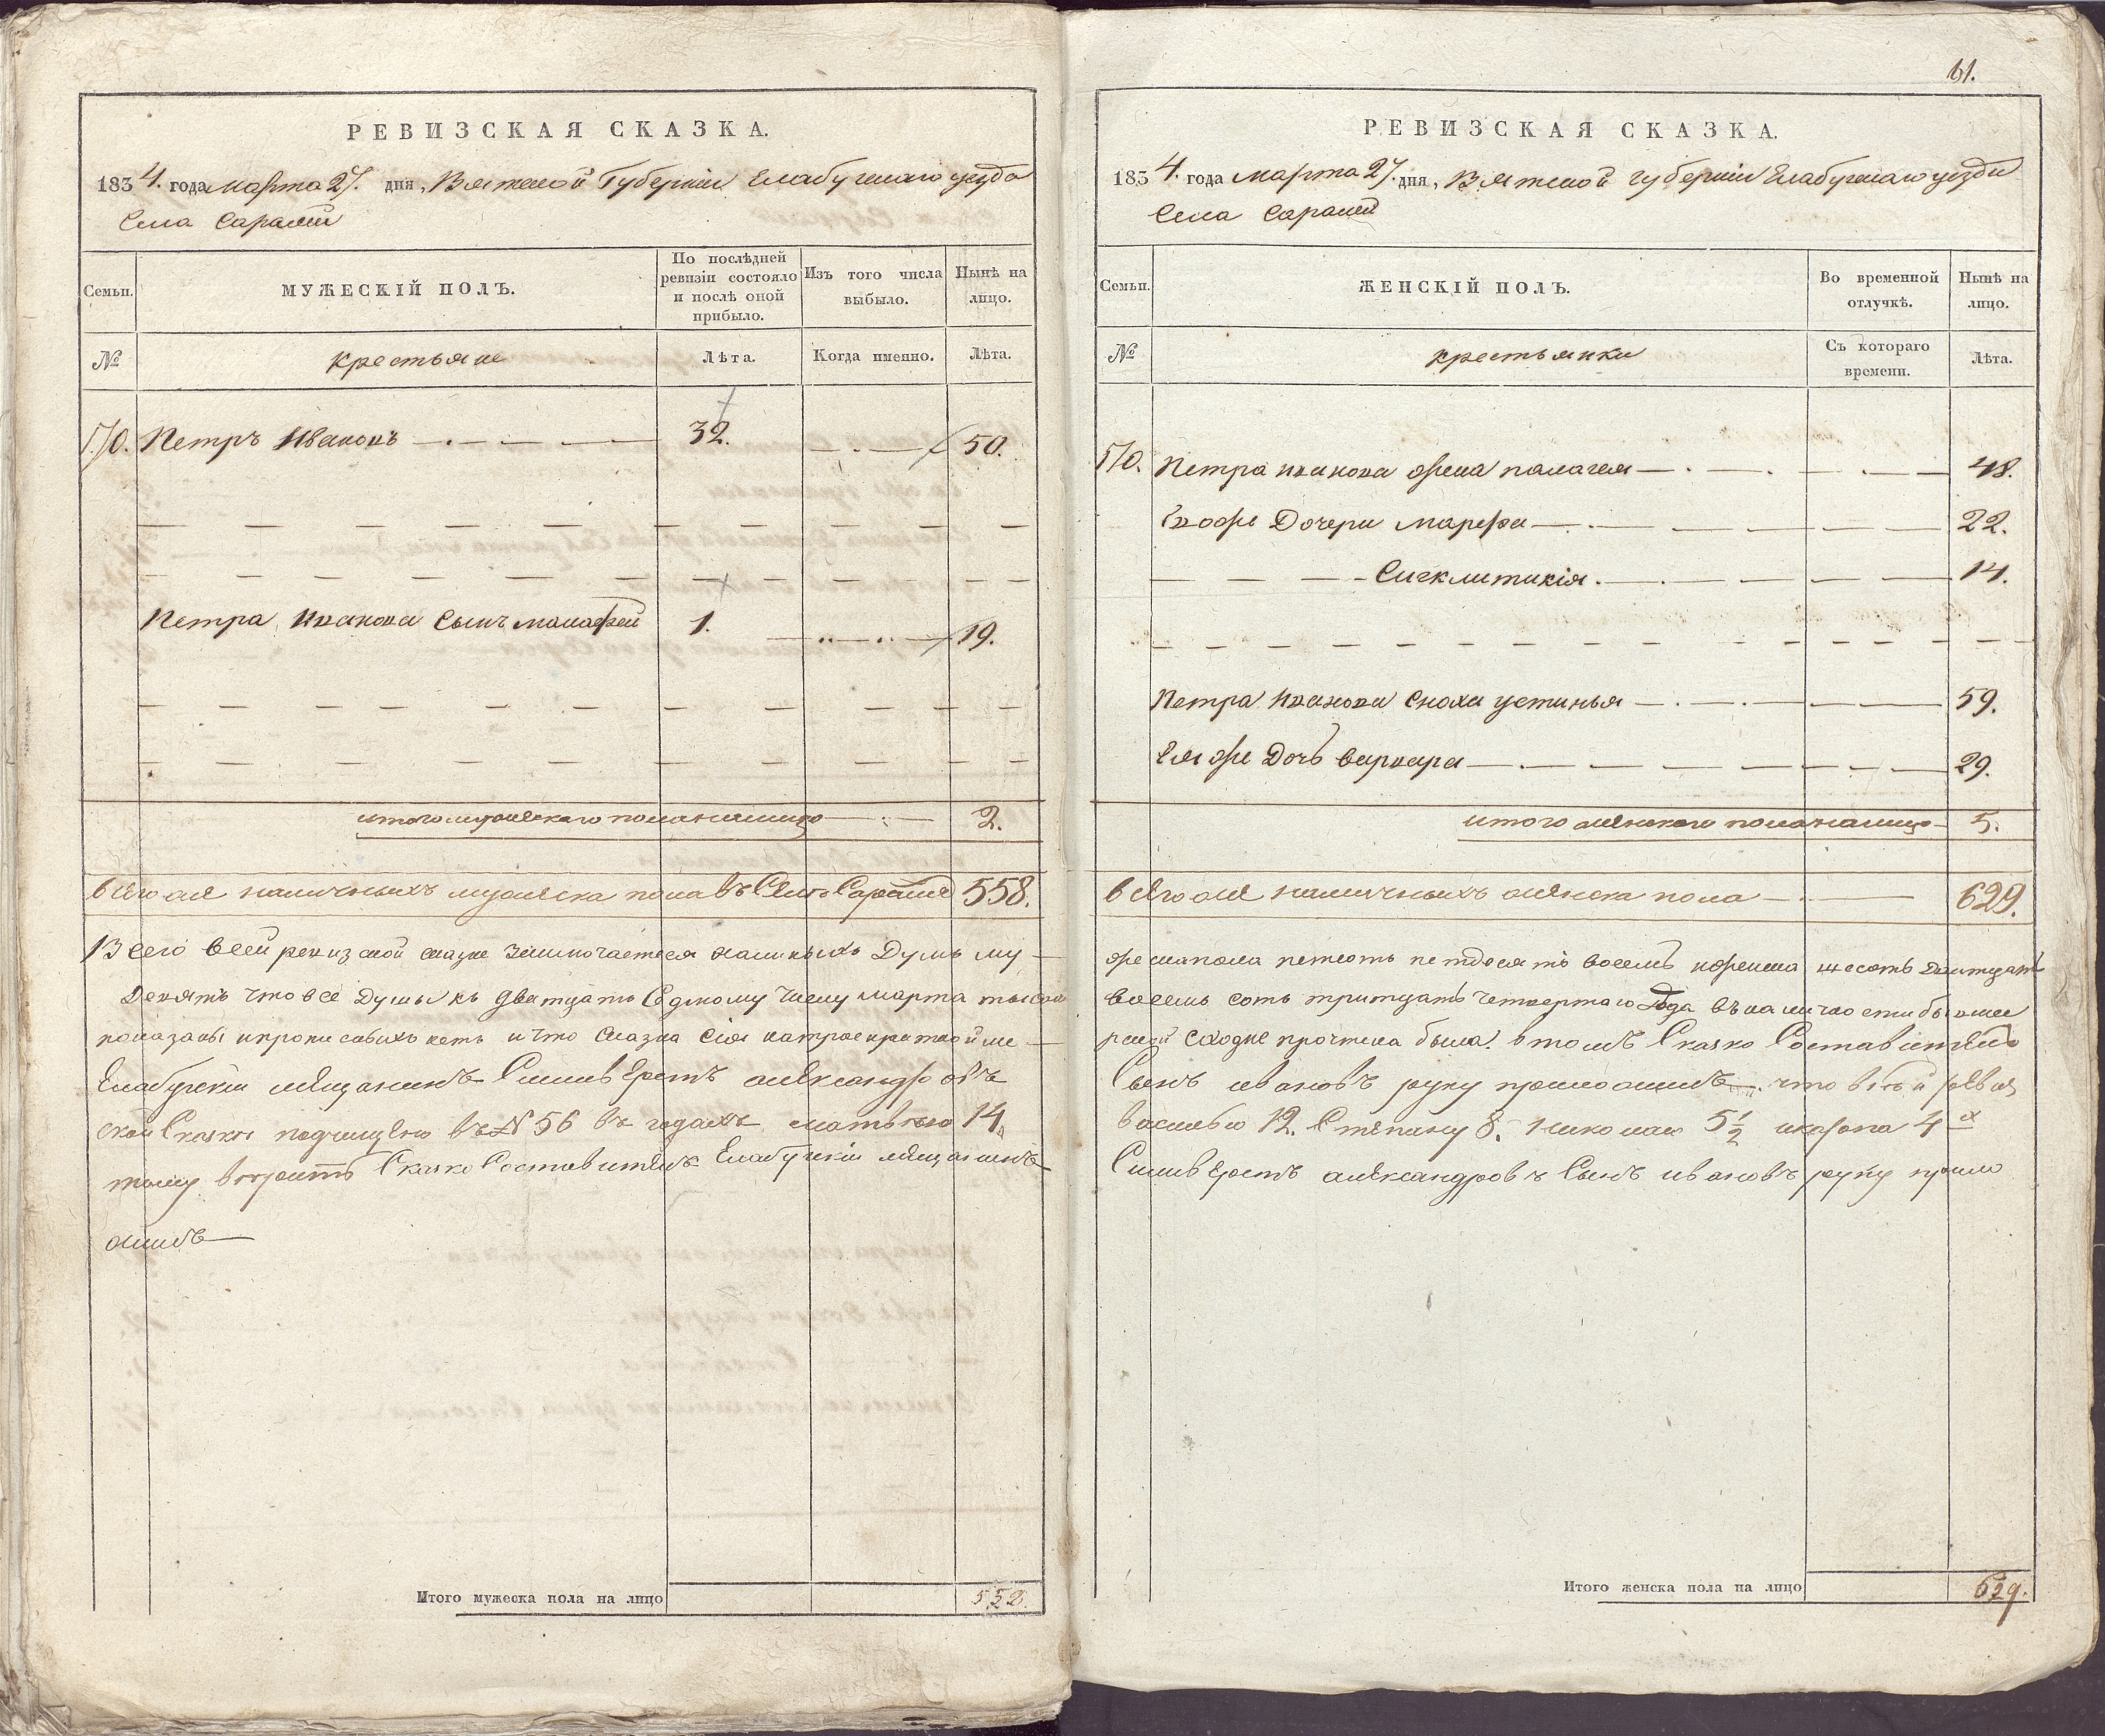 РЕВИЗСКАЯ СКАЗКА.
1834. года марта 27. дня, Вятской Губернии Елабугскаго уезда
Села Саралей
Семьи.
МУЖЕСКІЙ ПОЛЪ.
По послѣдней ревизіи состояло и послѣ оной прибыло.
Изъ того числа выбыло.
Нынѣ на лицо.
№
крестьяне
Лѣта.
Когда именно.
Лѣта.
170. Петръ Ивановъ 32. 50.
Петра Иванова сынъ малафей 1. 19.
итого мужескаго пола налицо 2.
всего же наличныхъ мужеска пола въ Селе Саралие 558.
Всего в сей ревизской сказке заключается наличныхъ Душъ му-
Девять что все Душы къ дватцать Седмому числу марта тысеча
показаны и прописныхъ нетъ и что Сказка сія на троекратной ме-
Елабугскіи мещанинъ Сильверстъ александровъ
ской Сказки подчищено въ № 56 въ годахъ матвею 14
тому верить Сказко Составитель Елабугскіи мещанинъ
ожилъ
Итого мужеска пола на лицо 558.
61.
РЕВИЗСКАЯ СКАЗКА.
1834. года марта 27. дня, Вятской губернии Елабугскаго уезда
Села Саралей
Семьи.
ЖЕНСКІЙ ПОЛЪ.
Во временной отлучкѣ.
Нынѣ на лицо.
№
крестьянки
Съ котораго времени.
Лѣта.
170. Петра иванова жена палагея 48.
Ево же Дочери марефа 22.
Сигклитикія 14.
Петра Иванова сноха устинья 59.
Ея же Дочь варвара 29.
итого женскаго пола налицо 5.
всего же наличныхъ женска пола 629.
жескапола петсотъ петдесятъ восемь и женска шесотъ Дватцать
восемь сотъ тритцать четвертаго Года въ наличности бывшеи
рской сходке прочтена была. в томъ Сказко Составитель
Сынъ ивановъ руку приложилъ что в сей ревиз
василью 12. Степану 8. николаю 5½ 4х
Сильверстъ александровъ Сынъ ивановъ руку прило
Итого женска пола на лицо 629.